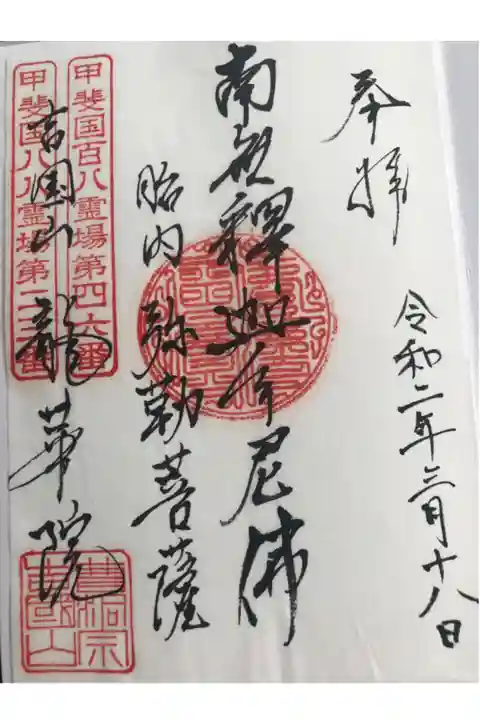 奉拝
令和二年三月十八日
南無釋迦牟尼佛
胎内弥勒菩薩
甲斐国百八霊場第四六番
甲斐国八八霊場第二三番
吉国山 龍華院
曹洞宗
吉国山